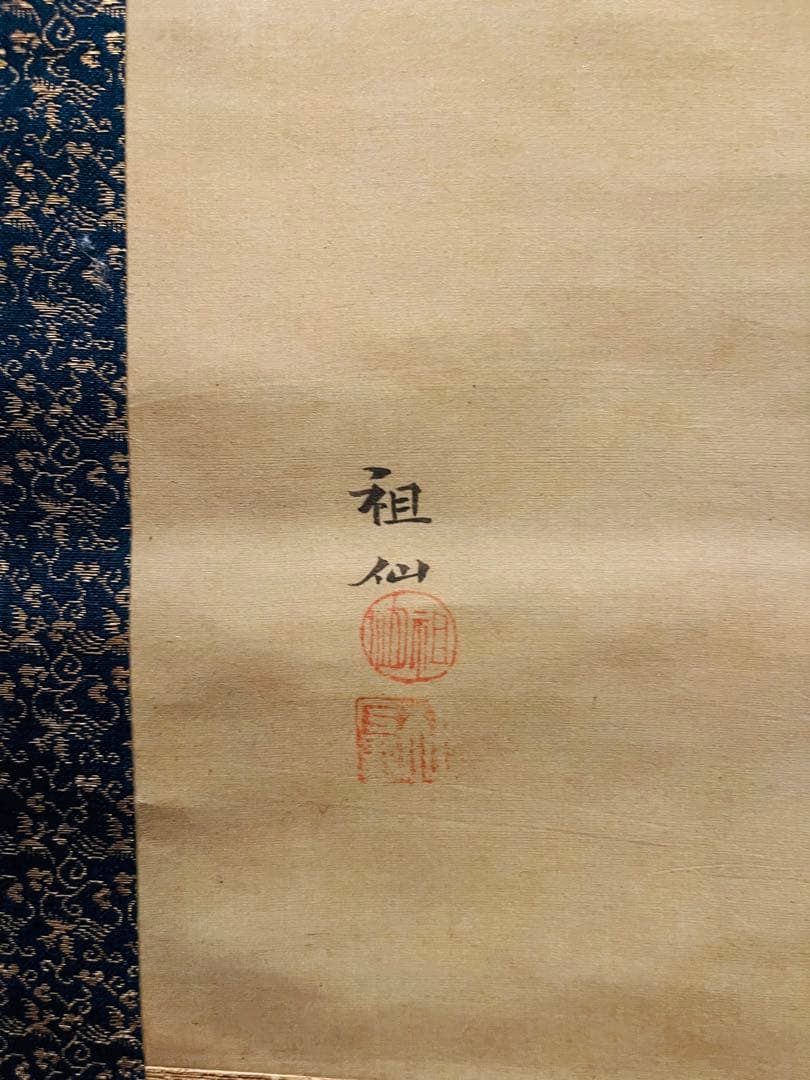 祖
仙
祖仙